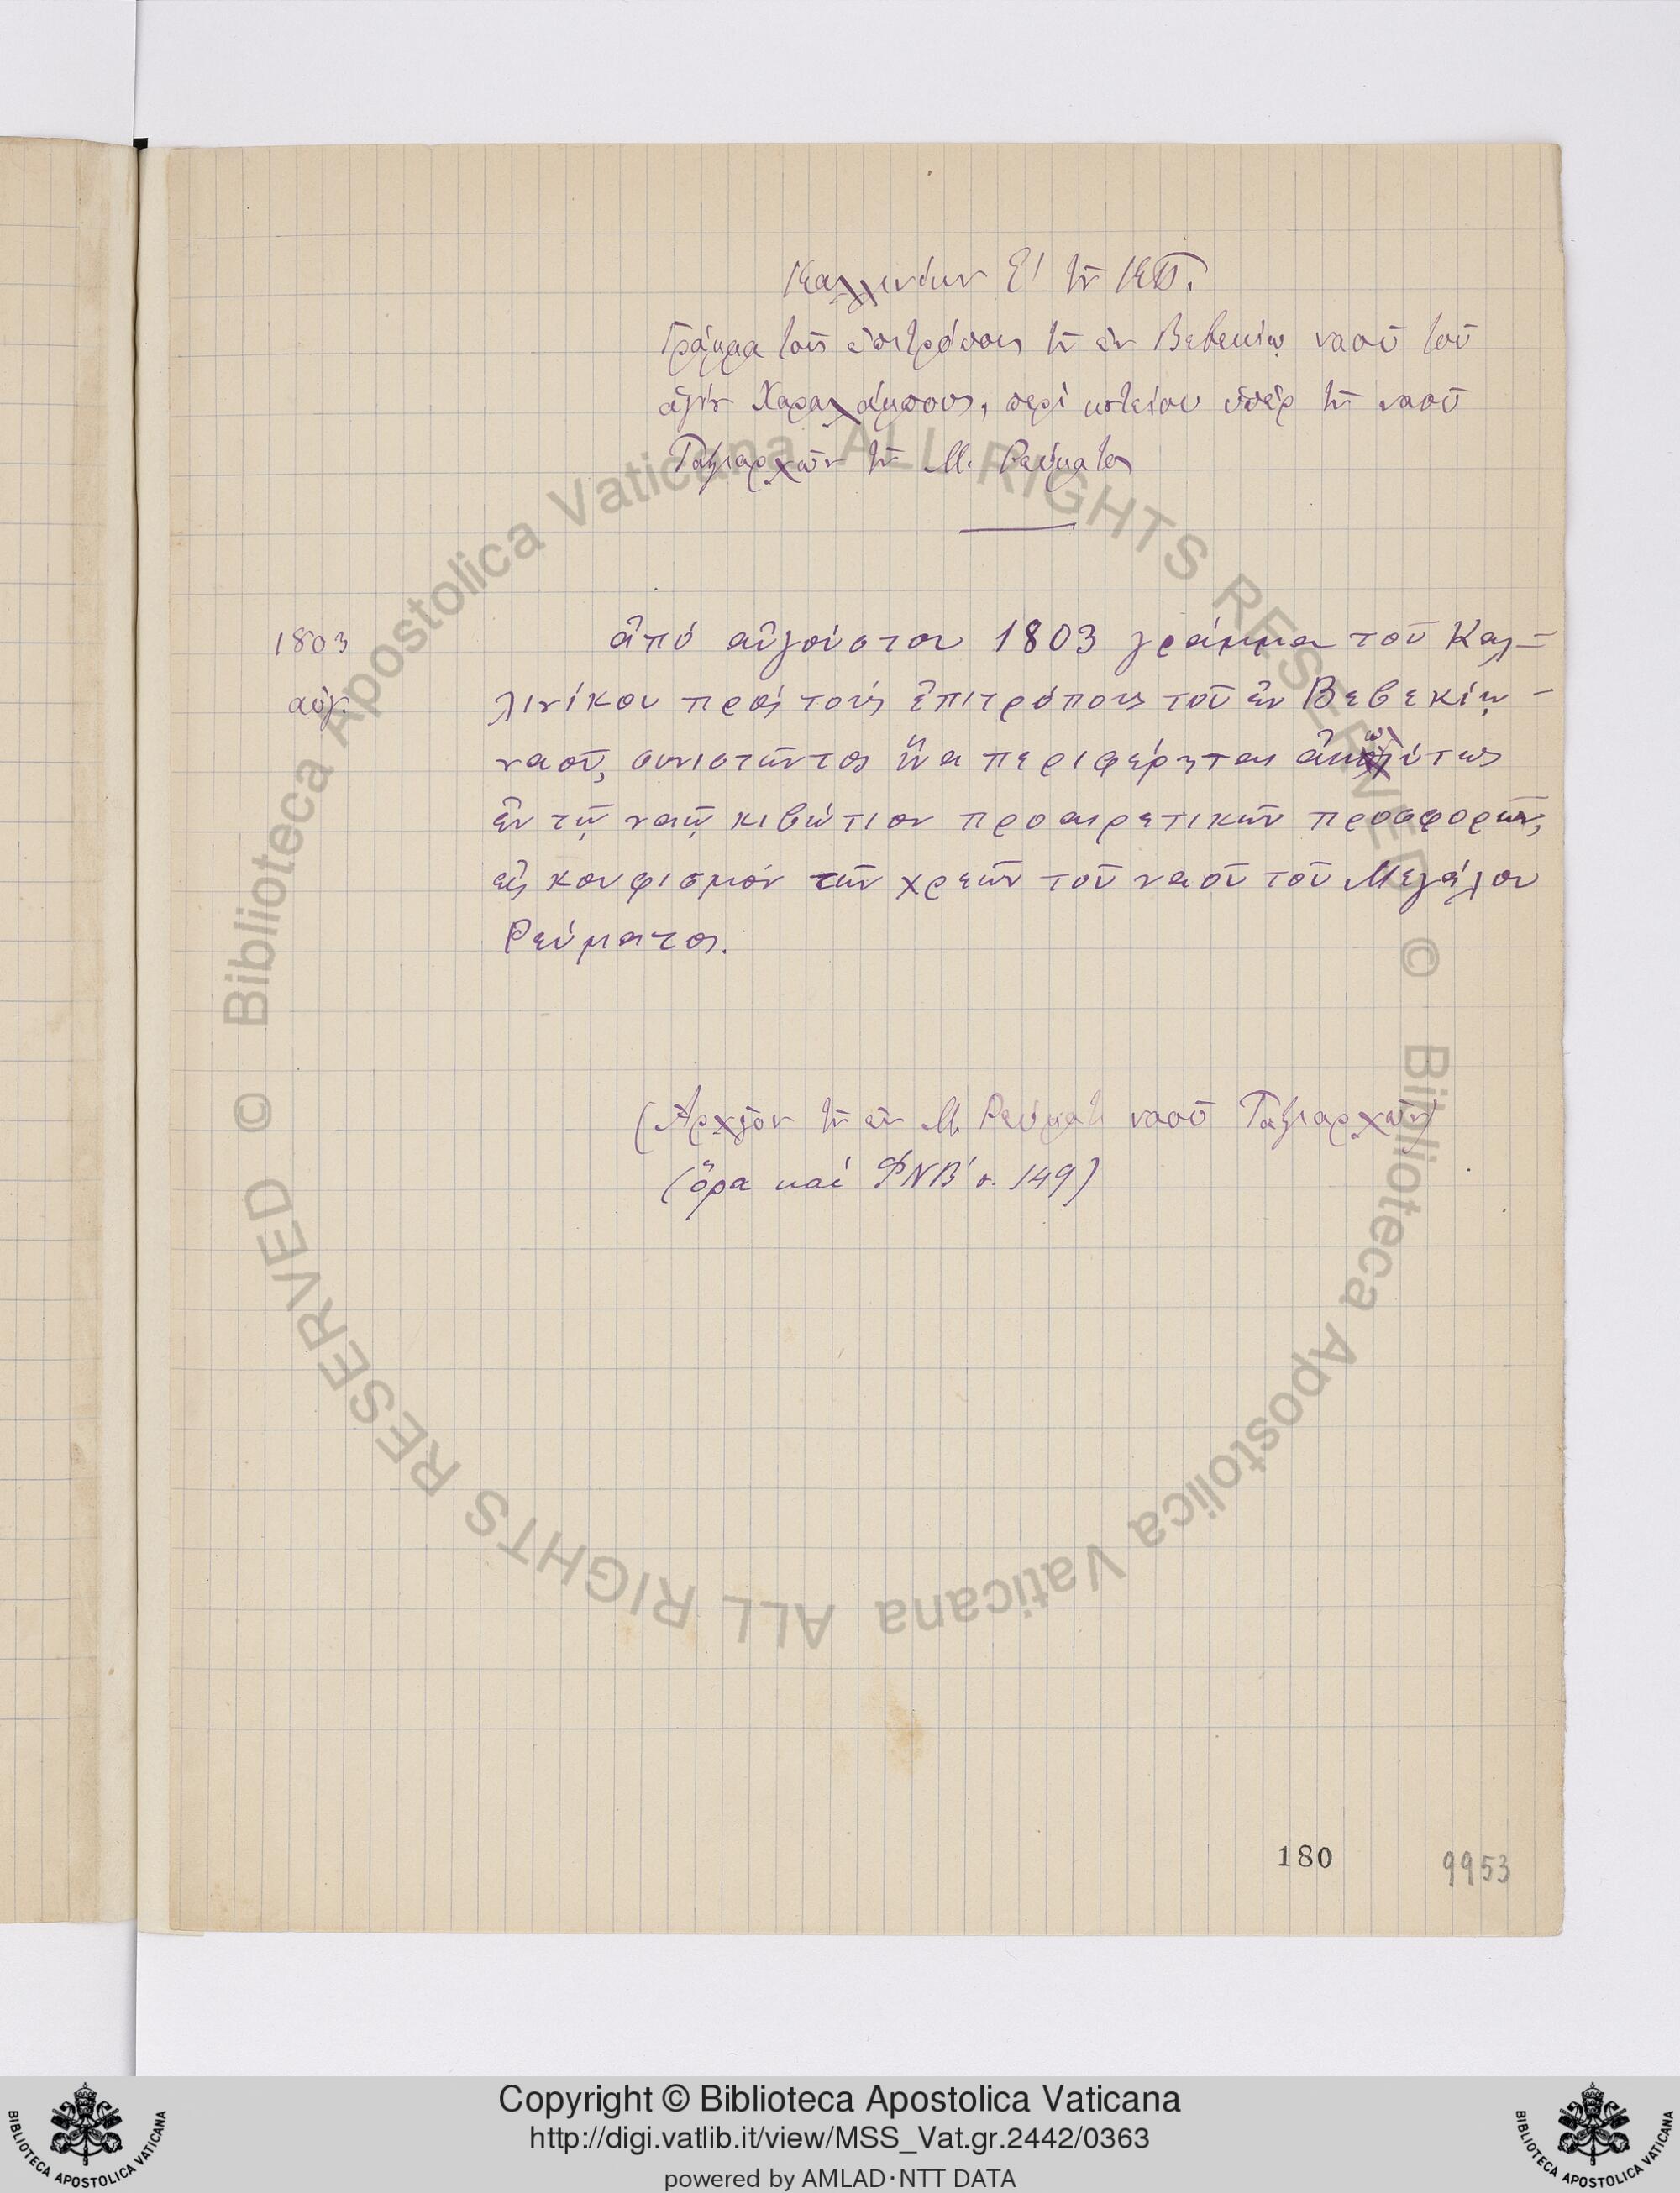 Καλλινίκου Ε' τοῦ ΚΠ.
Γράμμα τοῖς ἐπιτρόποις τοῦ ἐν Βεβεκίῳ ναοῦ τοῦ
ἁγίου Χαραλάμπους, περὶ κυτείου ὑπὲρ τοῦ ναοῦ
Ταξιαρχῶν τοῦ Μ. Ρεύματος
1803
αὐγ.
ἀπό αὐγούστου 1803 γράμμα τοῦ Καλ-
λινίκου πρὸς τοὺς ἐπιτρόπους τοῦ ἐν Βεβεκίῳ -
ναοῦ, συνιστῶντος ἵνα περιφέρηται ἀκωλύτως
ἐν τῷ ναῷ κιβώτιον προαιρετικῶν προσφορῶν,
εἰς κουφισμόν τῶν χρεῶν τοῦ ναοῦ τοῦ Μεγάλου
Ρεύματος.
(Ἀρχεῖον τοῦ ἐν Μ. Ρεύματι ναοῦ Ταξιαρχῶν)
(ὅρα καί ΦΝΒ' σ. 149)
180
9953
© Biblioteca Apostolica Vaticana ALL RIGHTS RESERVED
© Biblioteca Apostolica Vaticana ALL RIGHTS RESERVED
Copyright © Biblioteca Apostolica Vaticana
http://digi.vatlib.it/view/MSS_Vat.gr.2442/0363
powered by AMLAD·NTT DATA
BIBLIOTECA APOSTOLICA VATICANA
BIBLIOTECA APOSTOLICA VATICANA